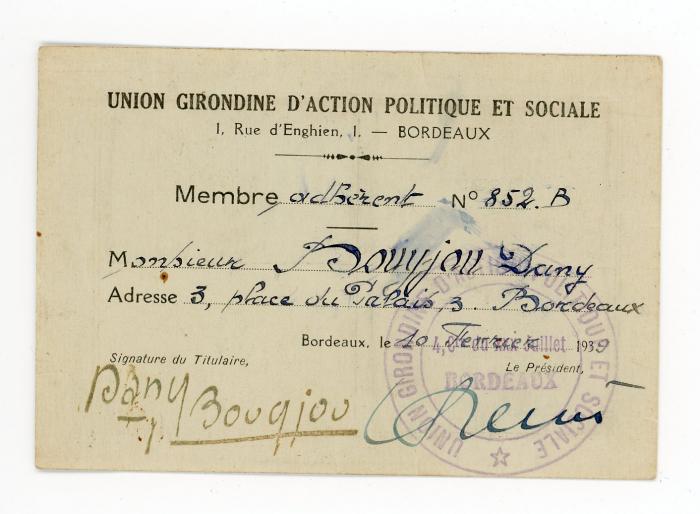 UNION GIRONDINE D'ACTION POLITIQUE ET SOCIALE
1, Rue d'Enghien, 1. — BORDEAUX
Membre adhérent N° 852. B
Monsieur Bouyjou Dany
Adresse 3, place du Palais, 3. Bordeaux
Bordeaux, le 10 Fevrier 1939
Signature du Titulaire,
Le Président,
Dany Bouyjou
UNION GIRONDINE D'ACTION POLITIQUE ET SOCIALE
Juillet
BORDEAUX